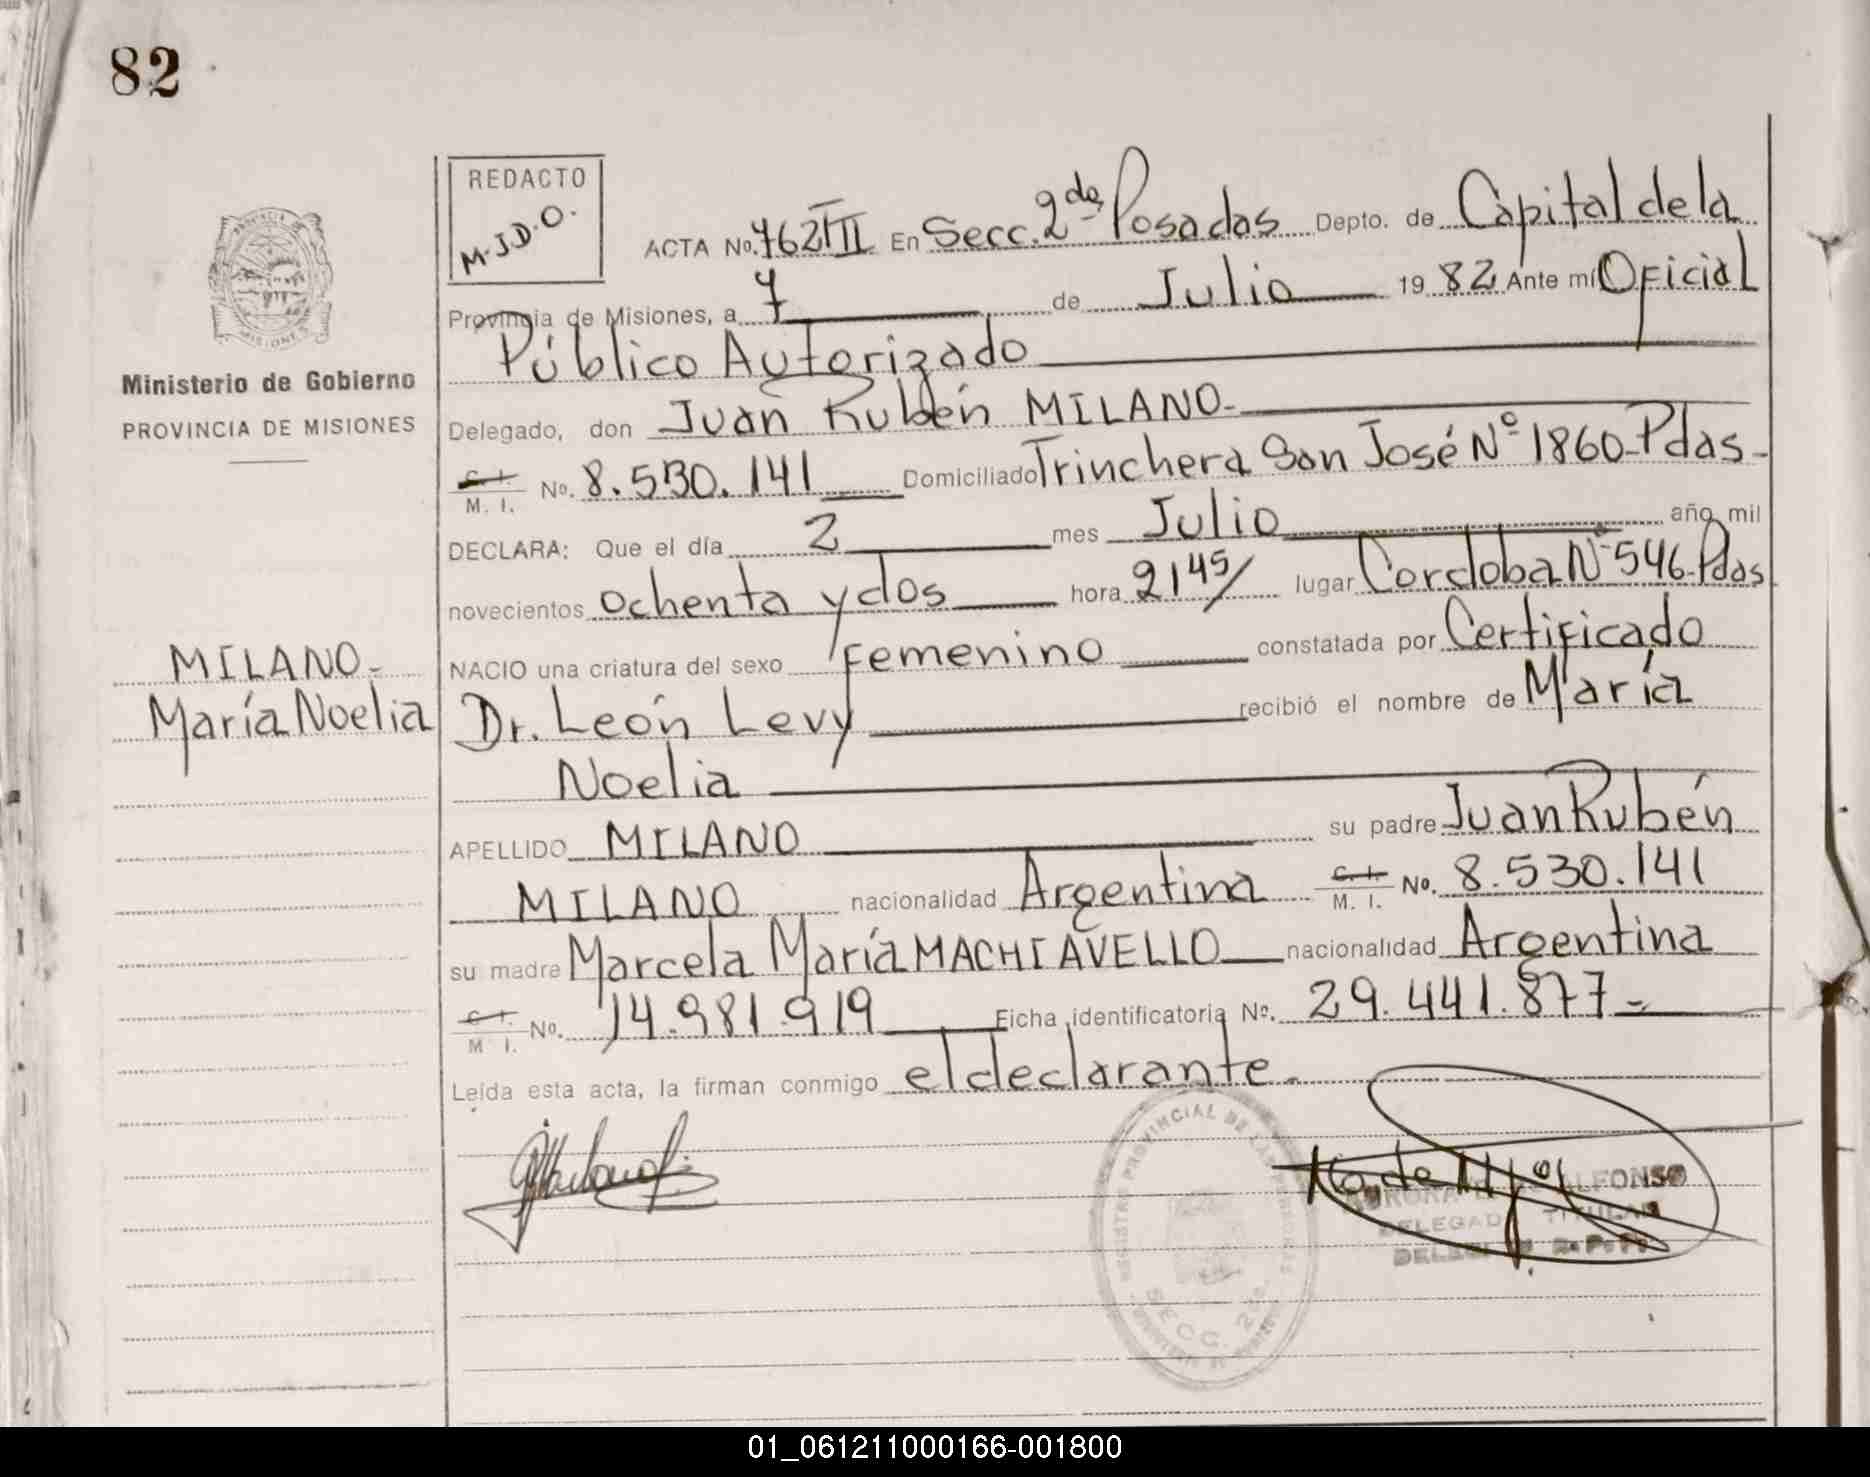 82
REDACTO
M.J.D.O.
ACTA No. 762TII En Secc. 2da Posadas Depto. de Capital de la
Provincia de Misiones, a 7 de Julio 1982 Ante mí Oficial
Público Autorizado
Ministerio de Gobierno
PROVINCIA DE MISIONES
Delegado, don Juan Rubén MILANO-
C. I. M. I. No. 8.530.141 Domiciliado Trinchera San José Nº 1860-Pdas-
DECLARA: Que el día 2 mes Julio año mil
novecientos ochenta y dos hora 21 45/ lugar Cordoba Nº 546-Pdas
NACIO una criatura del sexo femenino constatada por Certificado
MILANO-
María Noelia
Dr. León Levy recibió el nombre de María
Noelia
APELLIDO MILANO su padre Juan Rubén
MILANO nacionalidad Argentina C. I. M. I. No. 8.530.141
su madre Marcela María MACHIAVELLO nacionalidad Argentina
C. I. M I. No. 14.981.919 Ficha identificatoria Nº. 29.441.877-
Leída esta acta, la firman conmigo el declarante.
REGISTRO PROVINCIAL DE LAS PERSONAS
SECC. 2da.
ALFONSO
TITULAR
01_061211000166-001800